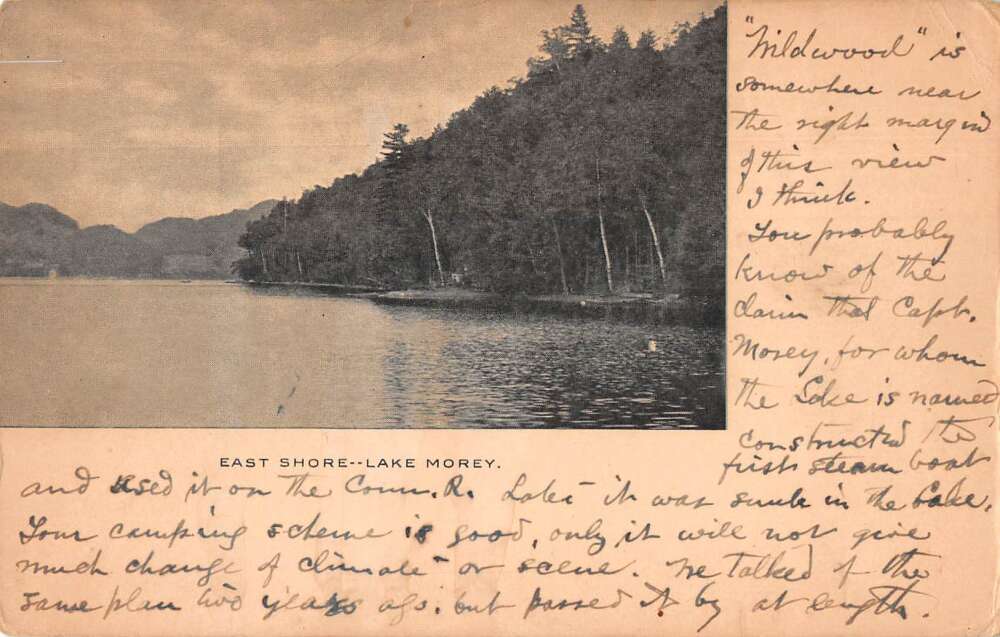 EAST SHORE--LAKE MOREY.
"Wildwood" is
somewhere near
the right margin
of this view
I think.
You probably
know of the
claim that Capt.
Morey, for whom
the Lake is named
constructed the
first steam boat
and used it on the Conn. R. Later it was sunk in the lake.
Your camping scheme is good, only it will not give
much change of climate or scene. We talked of the
same plan two years ago. but passed it by at length.